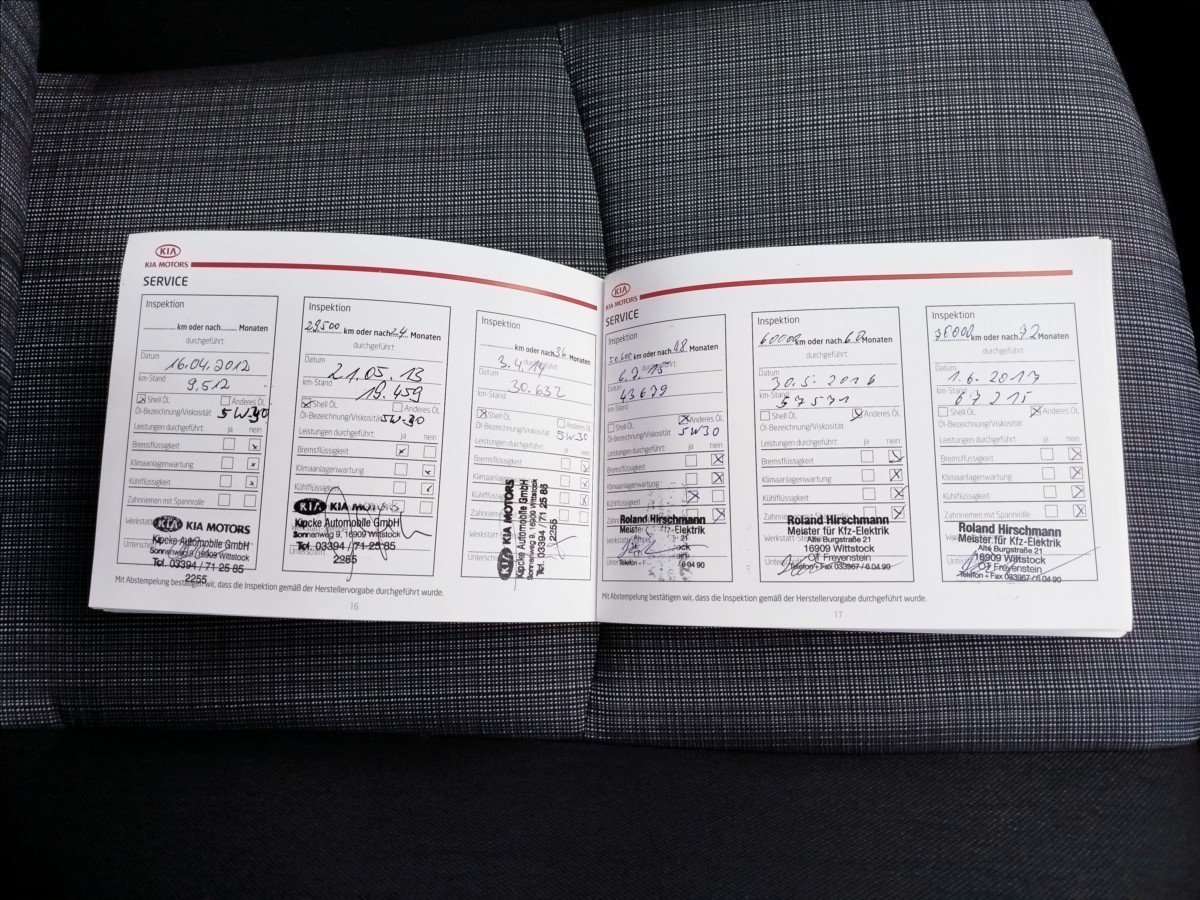 KIA
KIA MOTORS
SERVICE
Inspektion
km oder nach Monaten
durchgeführt:
Datum
16.04.2012
km-Stand
9.512
Shell Öl Anderes Öl
Öl-Bezeichnung/Viskosität 5W30
Leistungen durchgeführt: ja nein
Bremsflüssigkeit
Klimaanlagenwartung
Kühlflüssigkeit
Zahnriemen mit Spannrolle
KIA KIA MOTORS
Kipcke Automobile GmbH
Sonnenweg 9, 16909 Wittstock
Tel. 03394 / 71 25 85
2255
Inspektion
29500 km oder nach 24 Monaten
durchgeführt:
Datum
21.05.13
km-Stand
19.459
Shell Öl Anderes Öl
Öl-Bezeichnung/Viskosität 5W-30
Leistungen durchgeführt: ja nein
Bremsflüssigkeit
Klimaanlagenwartung
Kühlflüssigkeit
KIA KIA MOTORS
Kipcke Automobile GmbH
Sonnenweg 9, 16909 Wittstock
Tel. 03394 / 71 25 85
2255
Inspektion
km oder nach 36 Monaten
durchgeführt:
Datum
3.4.14
km-Stand
30.632
Shell Öl Anderes Öl
Öl-Bezeichnung/Viskosität
5W30
Leistungen durchgeführt: ja nein
Bremsflüssigkeit
Klimaanlagenwartung
Kühlflüssigkeit
KIA KIA MOTORS
Kipcke Automobile GmbH
Sonnenweg 9, 16909 Wittstock
Tel. 03394 / 71 25 85
2255
Mit Abstempelung bestätigen wir, dass die Inspektion gemäß der Herstellervorgabe durchgeführt wurde.
16
KIA
KIA MOTORS
SERVICE
Inspektion
km oder nach 48 Monaten
durchgeführt:
Datum
6.7.15
km-Stand
43679
Shell Öl Anderes Öl
Öl-Bezeichnung/Viskosität
5W30
Leistungen durchgeführt: ja nein
Bremsflüssigkeit
Klimaanlagenwartung
Kühlflüssigkeit
Roland Hirschmann
Meister für Kfz-Elektrik
6 04 90
Inspektion
60000 km oder nach Monaten
durchgeführt:
Datum
30.5.2016
km-Stand
57571
Shell Öl Anderes Öl
Öl-Bezeichnung/Viskosität
Leistungen durchgeführt: ja nein
Bremsflüssigkeit
Klimaanlagenwartung
Kühlflüssigkeit
Roland Hirschmann
Meister für Kfz-Elektrik
Alte Burgstraße 21
16909 Wittstock
OT Freyenstein
Telefon + Fax 033967 / 6 04 90
Inspektion
km oder nach Monaten
durchgeführt:
Datum
1.6.2017
km-Stand
67215
Shell Öl Anderes Öl
Öl-Bezeichnung/Viskosität
Leistungen durchgeführt: ja nein
Bremsflüssigkeit
Klimaanlagenwartung
Kühlflüssigkeit
Zahnriemen mit Spannrolle
Roland Hirschmann
Meister für Kfz-Elektrik
Alte Burgstraße 21
16909 Wittstock
OT Freyenstein
Telefon + Fax 033967 / 6 04 90
Mit Abstempelung bestätigen wir, dass die Inspektion gemäß der Herstellervorgabe durchgeführt wurde.
17